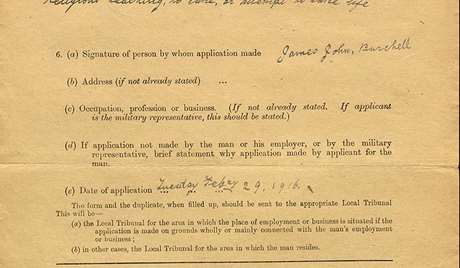 Religious teaching, to care, or attempt to save life
6. (a) Signature of person by whom application made James John, Burchell
(b) Address (if not already stated) ...
(c) Occupation, profession or business. (If not already stated. If applicant
is the military representative, this should be stated.)
(d) If application not made by the man or his employer, or by the military
representative, brief statement why application made by applicant for the
man.
(e) Date of application Tuesday Febry 29, 1916.
The form and the duplicate, when filled up, should be sent to the appropriate Local Tribunal
This will be—
(a) the Local Tribunal for the area in which the place of employment or business is situated if the
application is made on grounds wholly or mainly connected with the man's employment
or business;
(b) in other cases, the Local Tribunal for the area in which the man resides.